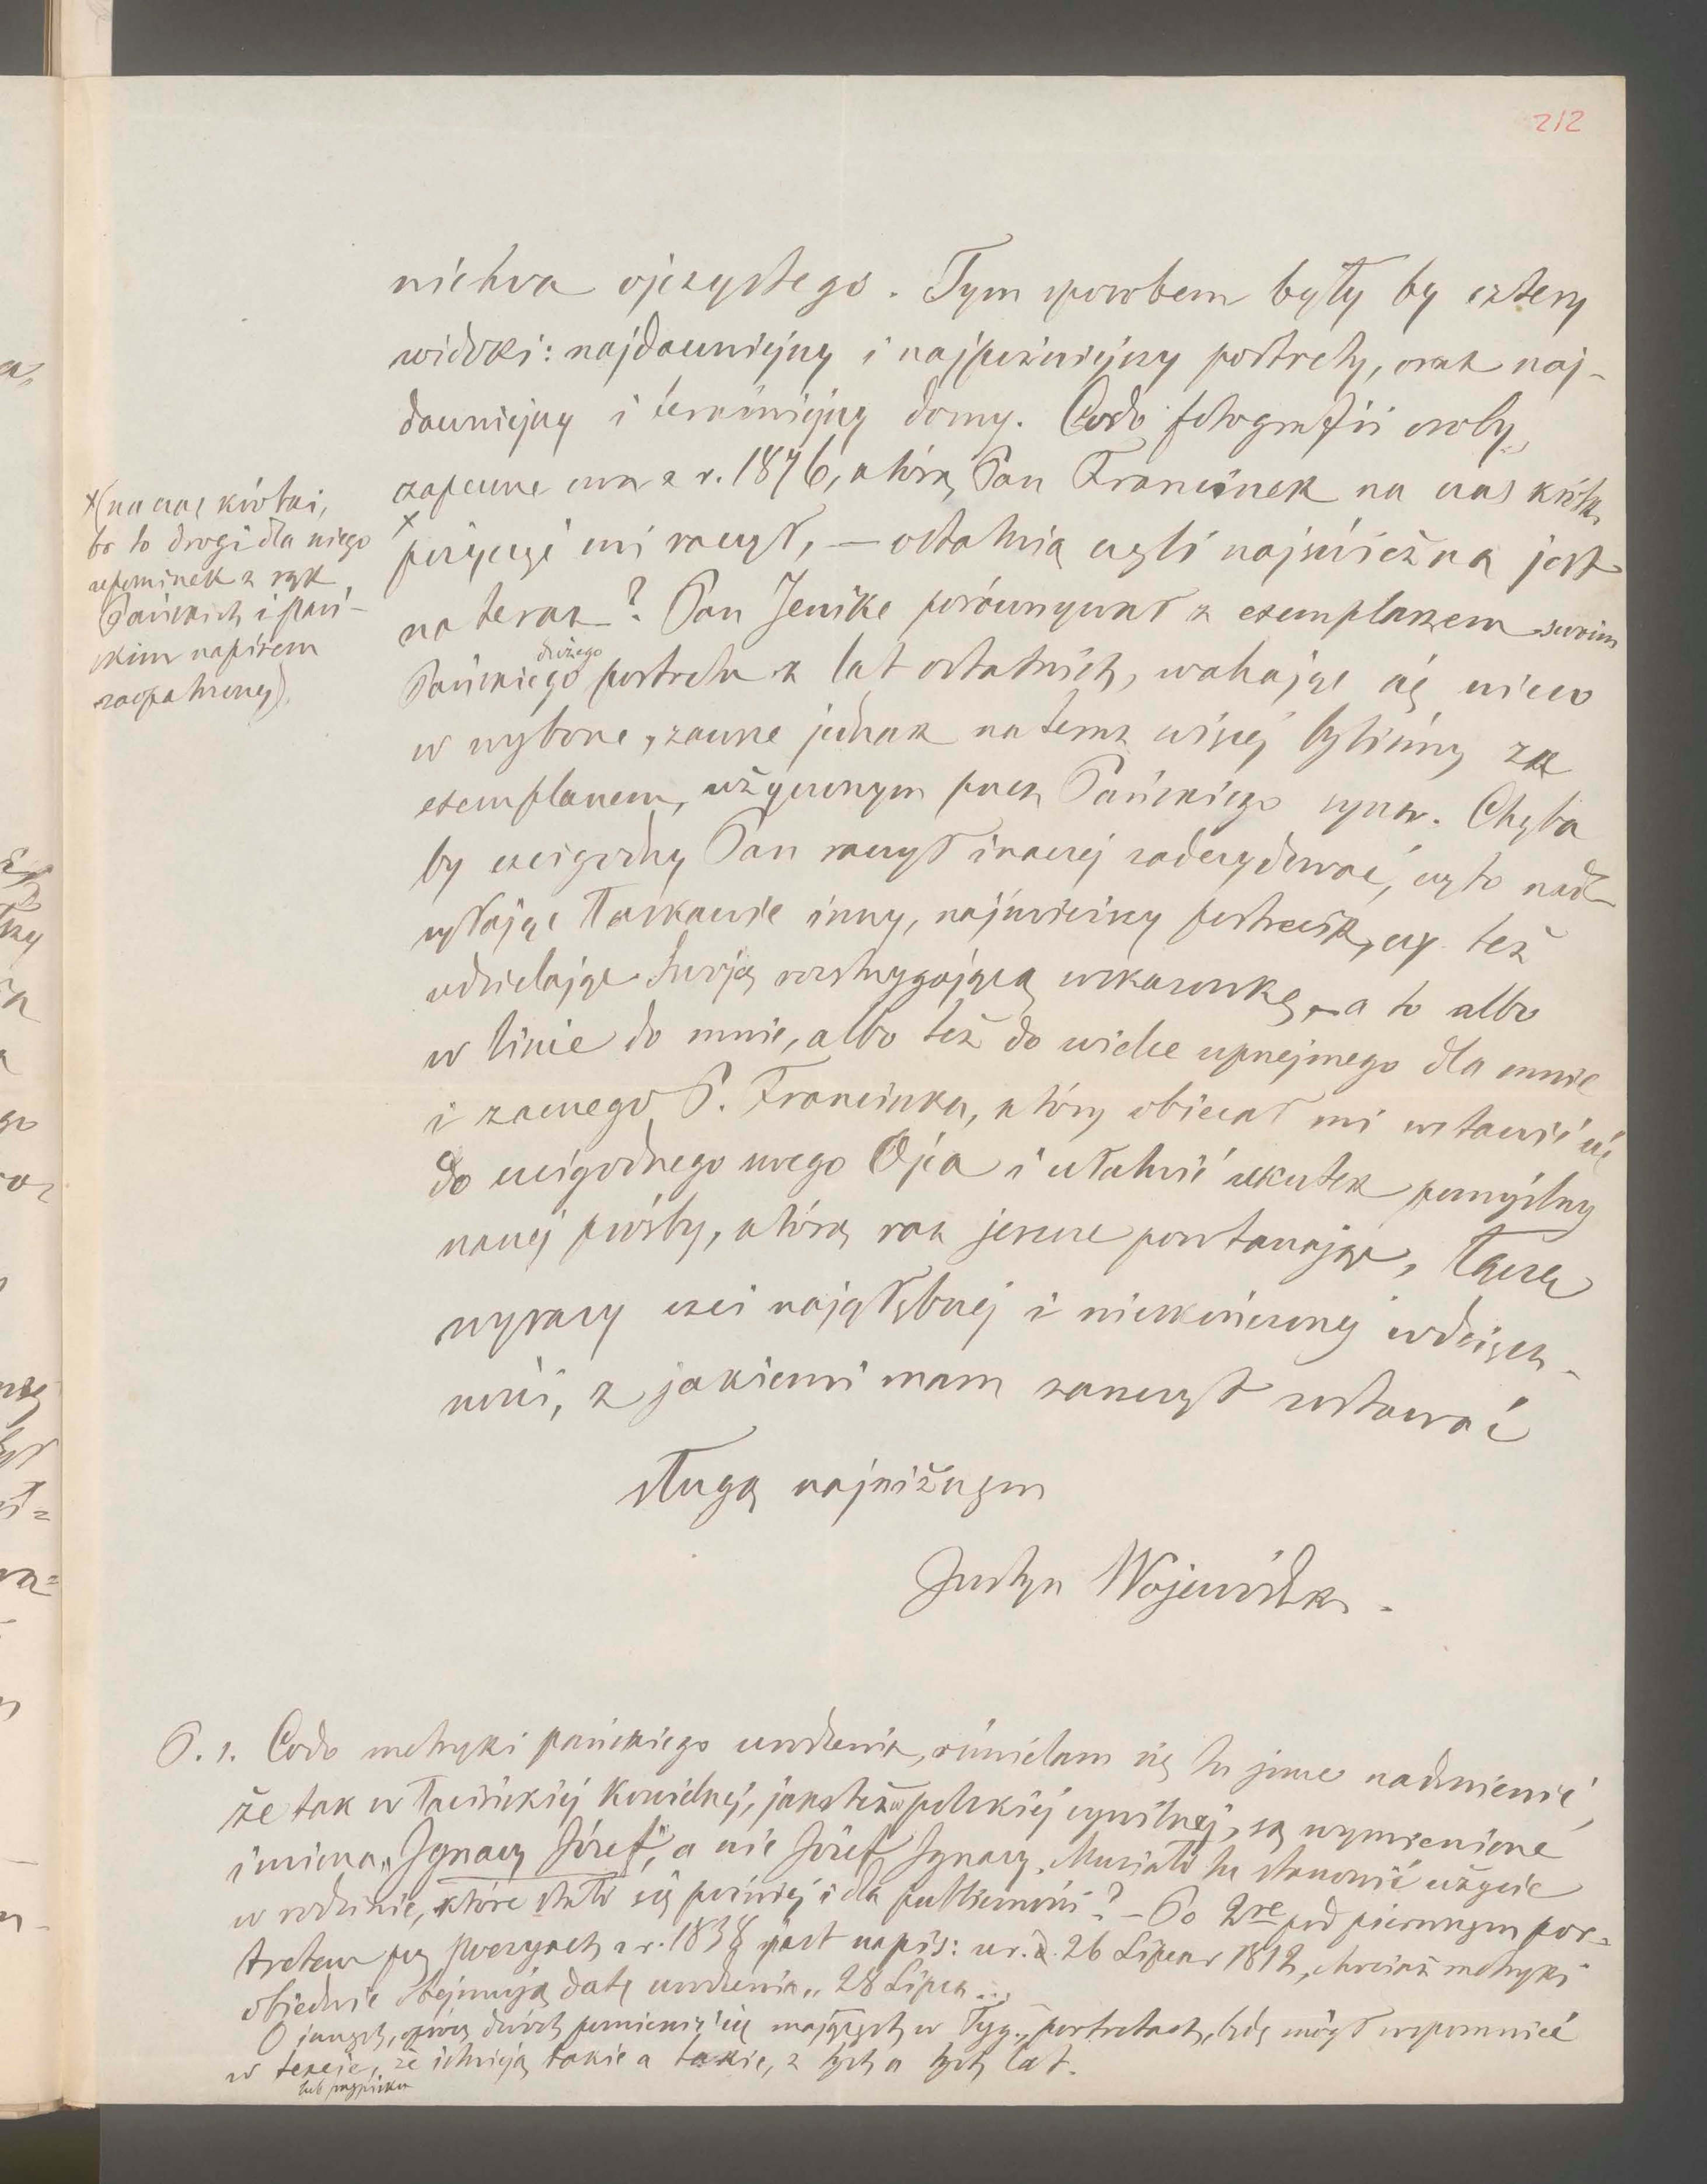 212
nictwa ojczystego. Tym sposobem były by cztery
widoki: najdawniejszy i najpóźniejszy portrety, oraz naj-
dawniejszy i teraźniejszy domy. Codo fotografii osoby,
zapewne owa z r. 1876, którą Pan Franciszek na czas krótki
pożyczyć mi raczył, — ostatnią czyli najświeższą jest
na teraz? Pan Jenike porównywał z exemplarzem swoim
dużego
Pańskiego portretu z lat ostatnich, wahając się nieco
w wyborze, zawsze jednak na teraz więcej byliśmy za
exemplarzem, użyczonym przez Pańskiego syna. Chyba
by czcigodny Pan raczył inaczej zadecydować, czy to nad-
syłając łaskawie inny, najświeższy portrecik, czy też
udzielając Swoją rozstrzygającą wskazówkę, a to albo
w liście do mnie, albo też do wielce uprzejmego dla mnie
i zacnego P. Franciszka, który obiecał mi wstawić się
do czcigodnego swego Ojca i ułatwić skutek pomyślny
naszej prośby, którą raz jeszcze powtarzając, łączę
wyrazy czci najgłębszej i nieskończonej wdzięcz-
ności, z jakiemi mam zaszczyt zostawać
sługą najniższym
Justyn Wojewódzki.
x (na czas krótki,
bo to drogi dla niego
upominek z rąk
Pańskich i Pań-
skim napisem
zaopatrzony).
P. s. Codo metryki pańskiego urodzenia, ośmielam się tu jeszcze nadmienić,
że tak w łacińskiej kościelnej, jako też w polskiej cywilnej, są wymienione
imiona „Ignacy Józef", a nie Józef Ignacy. Musiało tu stanowić użycie
w rodzinie, które stało się później i dla publiczności? — Po 2re pod pierwszym por-
tretem przy Poezyach z r. 1838 jest napis: ur. d. 26 Lipca r 1812, chociaż metryki
obiedwie obejmują datę urodzenia „28 Lipca".
O innych, oprócz dwóch pomieścić się mających w Tyg., portretach, będę mógł wspomnieć
w texcie, że istnieją takie a takie, z tych a tych lat.
lub przypisku